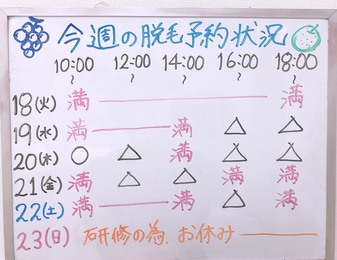 今週の脱毛予約状況
10:00〜 12:00〜 14:00〜 16:00〜 18:00〜
18(火) 満 ───── 満
19(水) 満 ── 満 △ △
20(木) ○ △ 満 △ △
21(金) 満 △ △ 満 満
22(土) 満 ── 満 △ 満
23(日) 研修の為、お休み ──